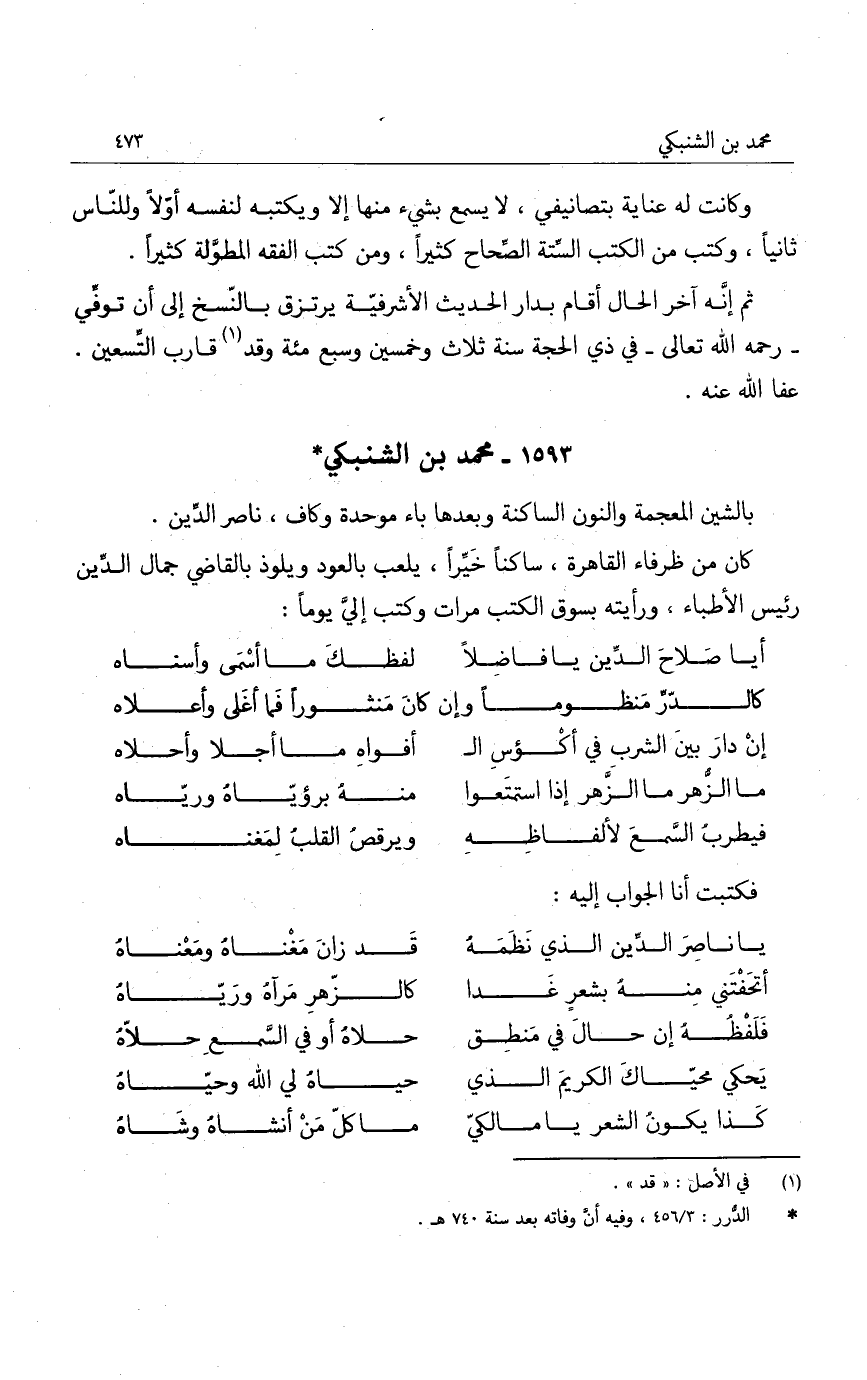 محمد بن الشنبكي ٤٧٣
وكانت له عناية بتصانيفي ، لا يسمع بشيء منها إلا ويكتبه لنفسه أوّلاً وللنّاس
ثانياً ، وكتب من الكتب السِّتة الصِّحاح كثيراً ، ومن كتب الفقه المطوَّلة كثيراً .
ثم إنَّه آخر الحال أقام بدار الحديث الأشرفيّة يرتزق بالنّسخ إلى أن توفِّي
ـ رحمه الله تعالى ـ في ذي الحجة سنة ثلاث وخمسين وسبع مئة وقد(١) قارب التِّسعين .
عفا الله عنه .
١٥٩٣ ـ محمد بن الشنبكي*
بالشين المعجمة والنون الساكنة وبعدها باء موحدة وكاف ، ناصر الدِّين .
كان من ظرفاء القاهرة ، ساكناً خَيِّراً ، يلعب بالعود ويلوذ بالقاضي جمال الدِّين
رئيس الأطباء ، ورأيته بسوق الكتب مرات وكتب إليَّ يوماً :
أيا صَلاحَ الدِّين يا فاضِلاً لفظكَ ما أسْمَى وأسناه
كالدّرِّ مَنظوماً وإن كانَ مَنثوراً فَما أغلى وأعلاه
إنْ دارَ بينَ الشرب في أكْؤسِ الـ أفواهِ ما أجلا وأحلاه
ما الزُّهر ما الزَّهر إذا استمتَعوا منهُ برؤيّاهُ وريّاه
فيطربُ السَّمعَ لألفاظِهِ ويرقصُ القلبُ لِمَغناه
فكتبت أنا الجواب إليه :
يا ناصِرَ الدِّين الذي نَظَمَهُ قَد زانَ مَغْناهُ ومَعْناهُ
أتحَفْتَني مِنهُ بشعرٍ غَدا كالزّهرِ مَرآهُ ورَيّاهُ
فَلَفْظُهُ إن حالَ في مَنطِقٍ حلاهُ أو في السَّمعِ حلاّهُ
يَحكي محيّاكَ الكريمَ الذي حياهُ لي الله وحيّاهُ
كَذا يكونُ الشعر يا مالكيّ ما كلّ مَنْ أنشاهُ وشَاهُ
(١) في الأصل : « قد » .
* الدُّرر : ٤٥٦/٣ ، وفيه أنَّ وفاته بعد سنة ٧٤٠ هـ .